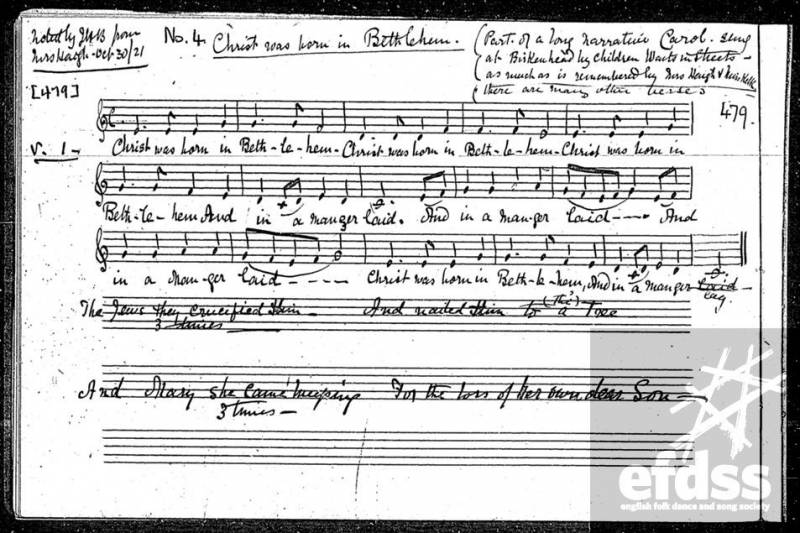 noted by JHB from
Mrs Haigh - Oct 30/21
No. 4. Christ was born in Bethlehem.
(Part of a long narrative Carol. sung
at Birkenhead by Children Waits in Streets -
as much as is remembered by Mrs Haigh &
there are many other verses
[479]
479.
V. 1 - Christ was born in Beth-le-hem - Christ was born in Beth-le-hem - Christ was born in
Beth-le-hem And in a manger laid. And in a man-ger laid - - - And
in a Man-ger laid - - - - Christ was born in Beth-le-hem, And in a manger laid -
lay
The Jews they crucified Him - And nailed Him to a Tree
(the)
3 times
And Mary she came weeping For the loss of her own dear Son -
3 times -
efdss
english folk dance and song society